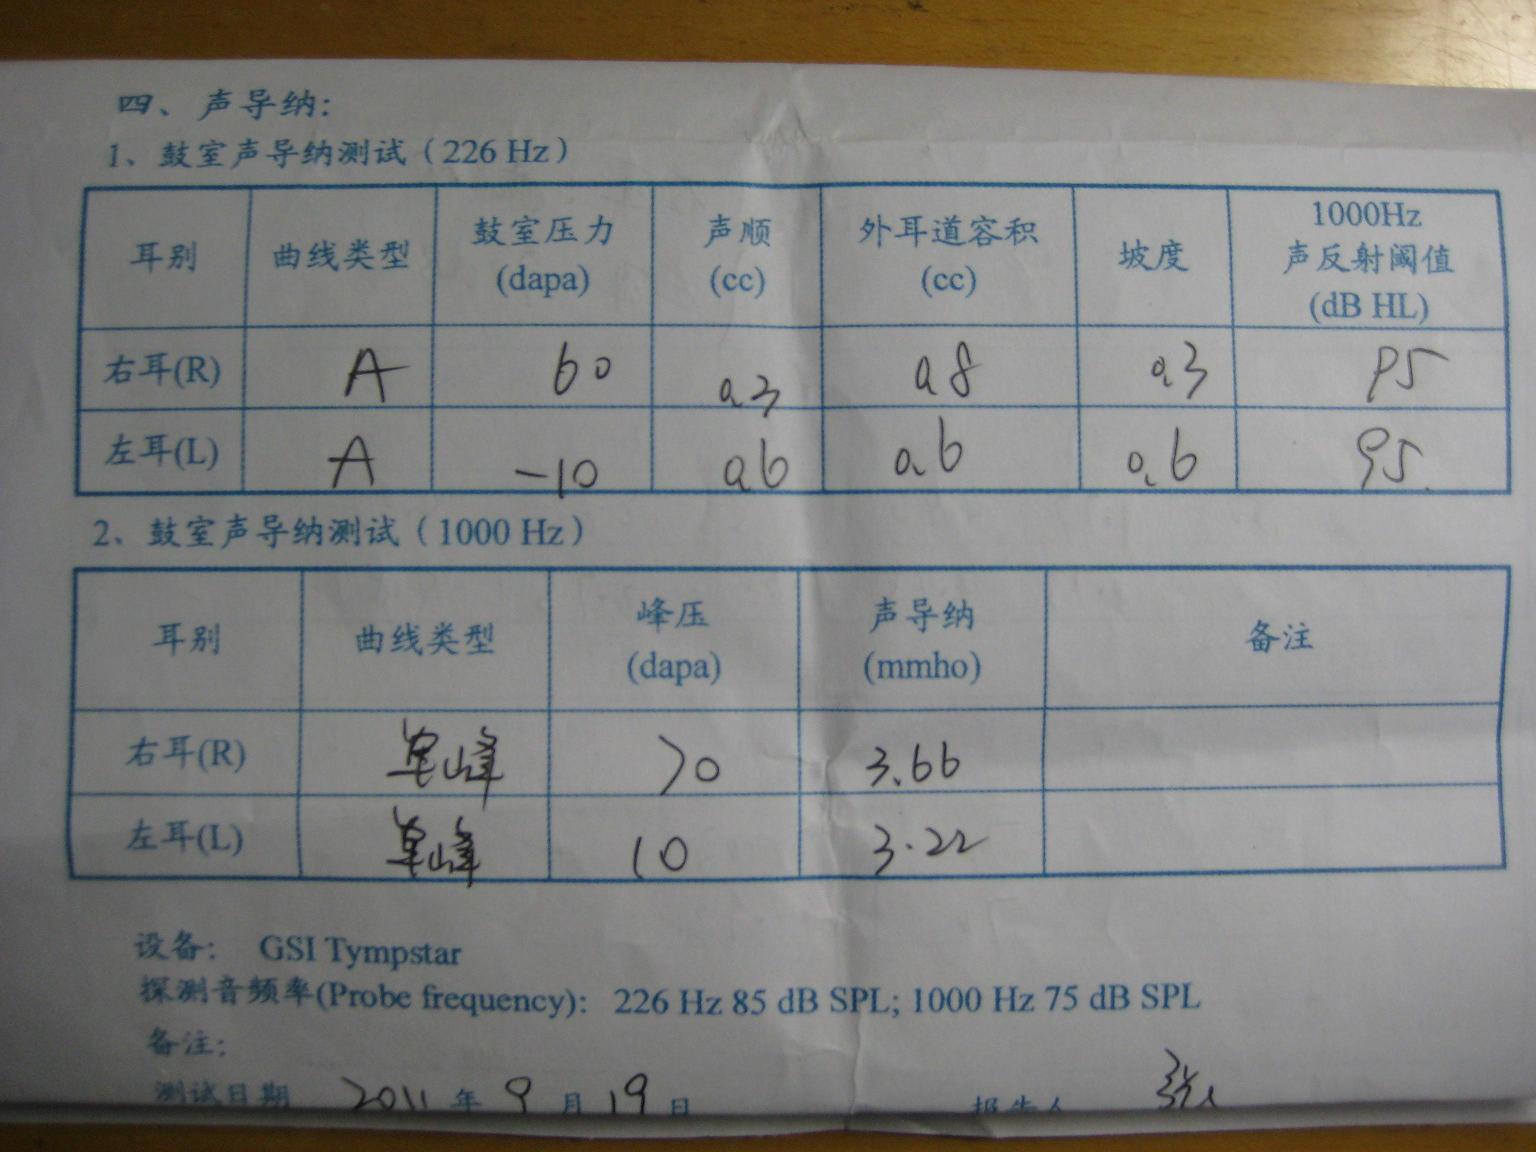 四、声导纳:
1、鼓室声导纳测试（226 Hz）
耳别 曲线类型 鼓室压力 (dapa) 声顺 (cc) 外耳道容积 (cc) 坡度 1000Hz 声反射阈值 (dB HL)
右耳(R) A 60 0.3 0.8 0.3 95
左耳(L) A -10 0.6 0.6 0.6 95
2、鼓室声导纳测试（1000 Hz）
耳别 曲线类型 峰压 (dapa) 声导纳 (mmho) 备注
右耳(R) 单峰 70 3.66
左耳(L) 单峰 10 3.22
设备: GSI Tympstar
探测音频率(Probe frequency): 226 Hz 85 dB SPL; 1000 Hz 75 dB SPL
备注:
测试日期 2011 年 9 月 19 日 报告人